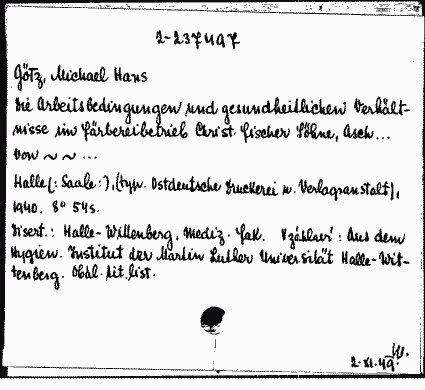 2-237497
Götz, Michael Hans
Die Arbeitsbedingungen und gesundheitlichen Verhält-
nisse im Färbereibetrieb Christ. Fischer Söhne, Asch...
Von ~ ~ ...
Halle(:Saale:), (typ. Ostdeutsche Druckerei u. Verlagsanstalt),
1940. 8° 54s.
Disert.: Halle-Wittenberg, Mediz. Fak. V záhlaví: Aus dem
Hygien. Institut der Martin Luther Universität Halle-Wit-
tenberg. Obál. tit. list.
2.XI.49